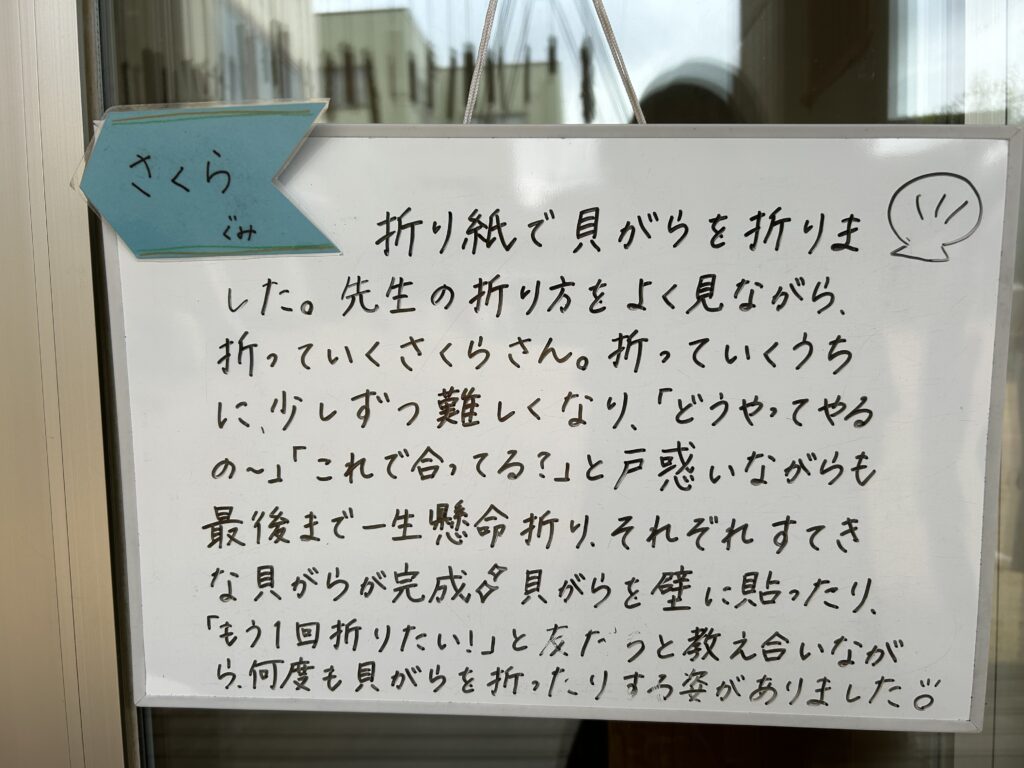 さくら
ぐみ
折り紙で貝がらを折りま
した。先生の折り方をよく見ながら、
折っていくさくらさん。折っていくうち
に、少しずつ難しくなり、「どうやってやる
の～」「これで合ってる？」と戸惑いながらも
最後まで一生懸命折り、それぞれすてき
な貝がらが完成 貝がらを壁に貼ったり、
「もう1回折りたい!」と友だちと教え合いなが
ら、何度も貝がらを折ったりする姿がありました